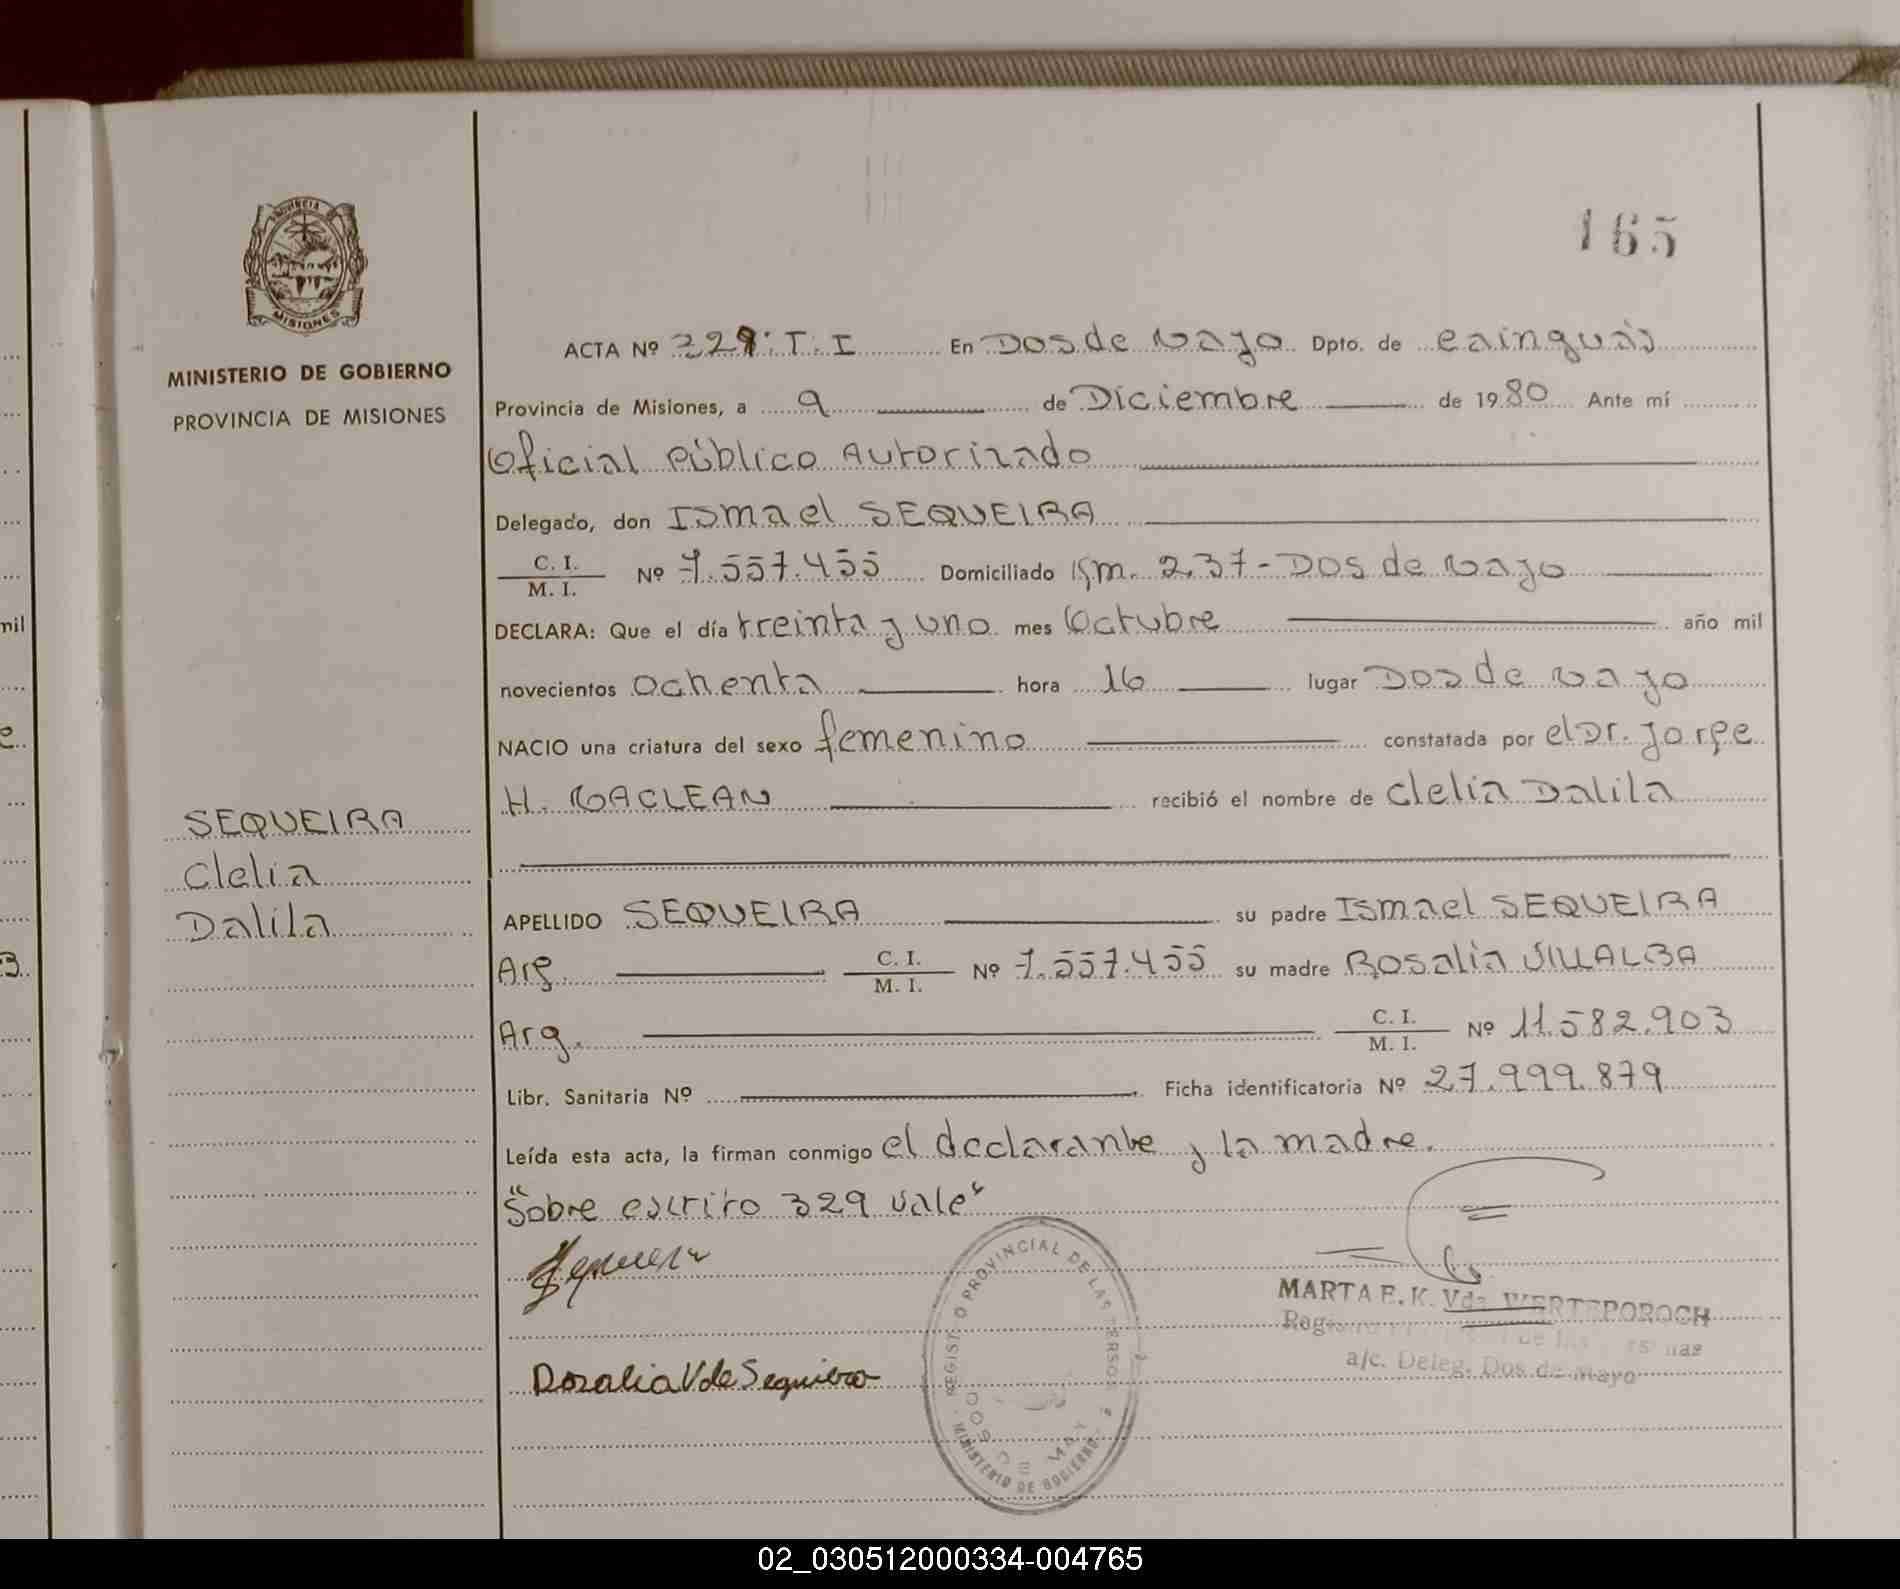 165
PROVINCIA
MISIONES
MINISTERIO DE GOBIERNO
PROVINCIA DE MISIONES
SEQUEIRA
Clelia
Dalila
ACTA Nº 329. T. I En Dos de Mayo Dpto. de Cainguás
Provincia de Misiones, a 9 de Diciembre de 1980 Ante mí
Oficial Público Autorizado
Delegado, don Ismael SEQUEIRA
C. I.
M. I. Nº 7.557.455 Domiciliado Km. 237 - Dos de Mayo
DECLARA: Que el día treinta y uno mes Octubre año mil
novecientos ochenta hora 16 lugar Dos de Mayo
NACIO una criatura del sexo femenino constatada por el Dr. Jorge
H. MACLEAN recibió el nombre de Clelia Dalila
APELLIDO SEQUEIRA su padre Ismael SEQUEIRA
Arg. C. I.
M. I. Nº 7.557.455 su madre Rosalia VILLALBA
Arg. C. I.
M. I. Nº 11.582.903
Libr. Sanitaria Nº Ficha identificatoria Nº 27.999.879
Leída esta acta, la firman conmigo el declarante y la madre.
"Sobre escrito 329 vale"
Rosalia V de Sequiera
REGISTRO PROVINCIAL DE LAS PERSONAS
MINISTERIO DE GOBIERNO
DOS DE MAYO
MARTA E. K. Vda. WERTEPOROCH
a/c. Deleg. Dos de Mayo
mil
02_030512000334-004765